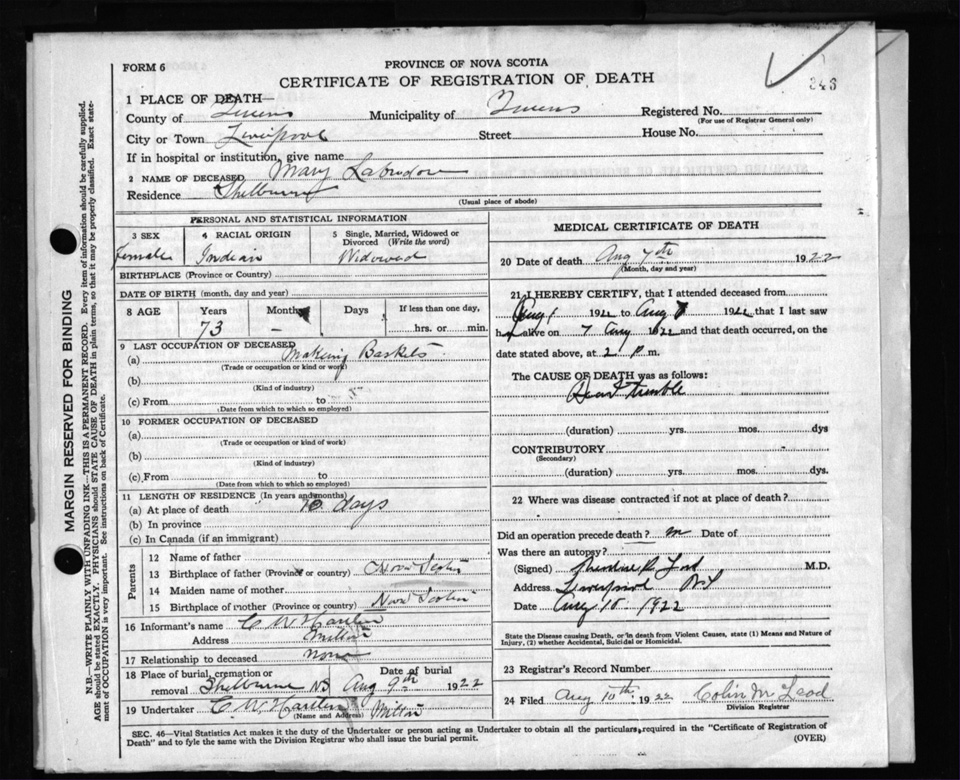 FORM 6
PROVINCE OF NOVA SCOTIA
CERTIFICATE OF REGISTRATION OF DEATH
343
1 PLACE OF DEATH—
County of Queens Municipality of Queens Registered No.
(For use of Registrar General only)
City or Town Liverpool Street House No.
If in hospital or institution, give name
2 NAME OF DECEASED Mary Labradore
Residence Shelburne
(Usual place of abode)
PERSONAL AND STATISTICAL INFORMATION
3 SEX 4 RACIAL ORIGIN 5 Single, Married, Widowed or Divorced (Write the word)
Female Indian Widowed
BIRTHPLACE (Province or Country)
DATE OF BIRTH (month, day and year)
8 AGE Years Months Days If less than one day,
73 – hrs. or min.
9 LAST OCCUPATION OF DECEASED
(a) Making Baskets
(Trade or occupation or kind of work)
(b)
(Kind of industry)
(c) From to
(Date from which to which so employed)
10 FORMER OCCUPATION OF DECEASED
(a)
(Trade or occupation or kind of work)
(b)
(Kind of industry)
(c) From to
(Date from which to which so employed)
11 LENGTH OF RESIDENCE (In years and months)
(a) At place of death days
(b) In province
(c) In Canada (if an immigrant)
Parents
12 Name of father
13 Birthplace of father (Province or country) Nova Scotia
14 Maiden name of mother
15 Birthplace of mother (Province or country) Nova Scotia
16 Informant's name C W
Address Milton
17 Relationship to deceased none
18 Place of burial, cremation or removal Shelburne NS Date of burial Aug 9th 1922
19 Undertaker C. W. Milton
(Name and Address)
MEDICAL CERTIFICATE OF DEATH
20 Date of death Aug 7th 1922
(Month, day and year)
21 I HEREBY CERTIFY, that I attended deceased from
Aug 1 1922 to Aug 7 1922 that I last saw
h alive on 7 Aug 1922 and that death occurred, on the
date stated above, at 2 P m.
The CAUSE OF DEATH was as follows:
Heart trouble
(duration) yrs. mos. dys
CONTRIBUTORY
(Secondary)
(duration) yrs. mos. dys.
22 Where was disease contracted if not at place of death?
Did an operation precede death? Date of
Was there an autopsy?
(Signed) M.D.
Address Liverpool NS
Date Aug 10 1922
State the Disease causing Death, or in death from Violent Causes, state (1) Means and Nature of
Injury, (2) whether Accidental, Suicidal or Homicidal.
23 Registrar's Record Number
24 Filed Aug 10th 1922 Colin McLeod
Division Registrar
SEC. 46—Vital Statistics Act makes it the duty of the Undertaker or person acting as Undertaker to obtain all the particulars required in the "Certificate of Registration of
Death" and to fyle the same with the Division Registrar who shall issue the burial permit.
(OVER)
MARGIN RESERVED FOR BINDING
N.B.—WRITE PLAINLY WITH UNFADING INK—THIS IS A PERMANENT RECORD. Every item of information should be carefully supplied.
AGE should be stated EXACTLY. PHYSICIANS should STATE CAUSE OF DEATH in plain terms, so that it may be properly classified. Exact state-
ment of OCCUPATION is very important. See instructions on back of Certificate.